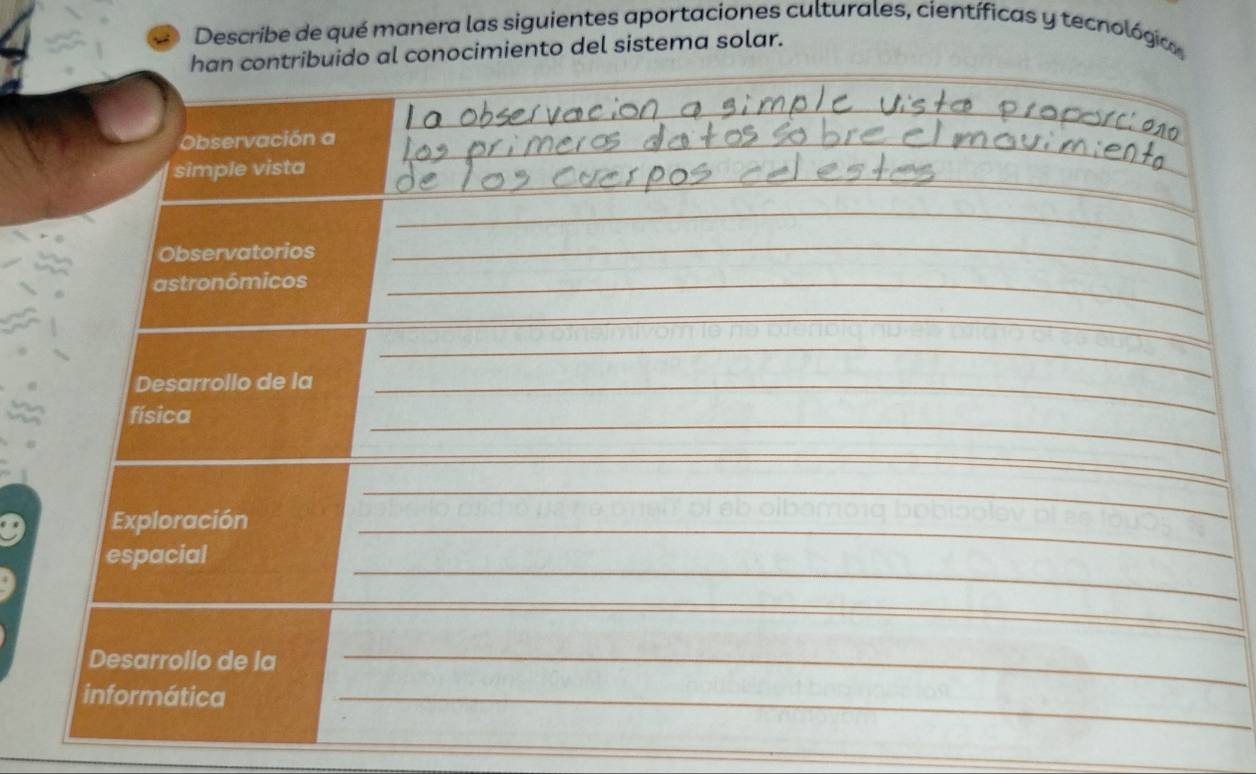 Describe de qué manera las siguientes aportaciones culturales, científicas y tecnológicas
han contribuido al conocimiento del sistema solar.
Observación a
simple vista
la observacion a simple vista proporciono
los primeros datos sobre el movimiento
de los cuerpos celestes
Observatorios
astronómicos
Desarrollo de la
física
Exploración
espacial
Desarrollo de la
informática